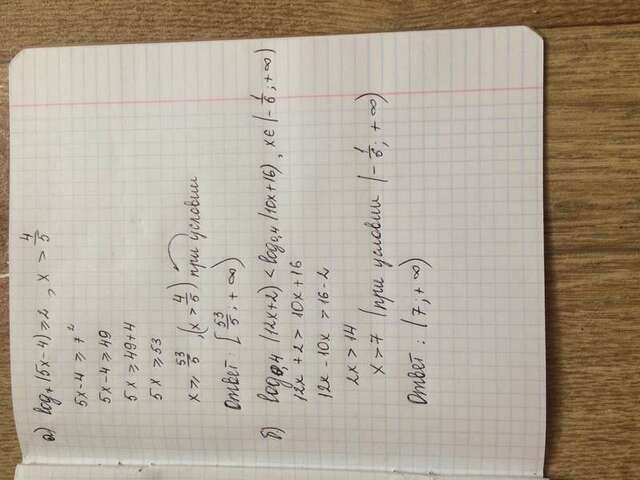 а) log₇(5x-4)≥2, x > 4/5
5x-4 ≥ 7²
5x-4 ≥ 49
5x ≥ 49+4
5x ≥ 53
x ≥ 53/5, (x > 4/5) при условии
Ответ: [53/5; +∞)
б) log₀,₄ (12x+2) < log₀,₄ (10x+16), x∈(-1/6; +∞)
12x + 2 > 10x+16
12x - 10x > 16-2
2x > 14
x > 7 (при условии (-1/6; +∞)
Ответ: (7; +∞)